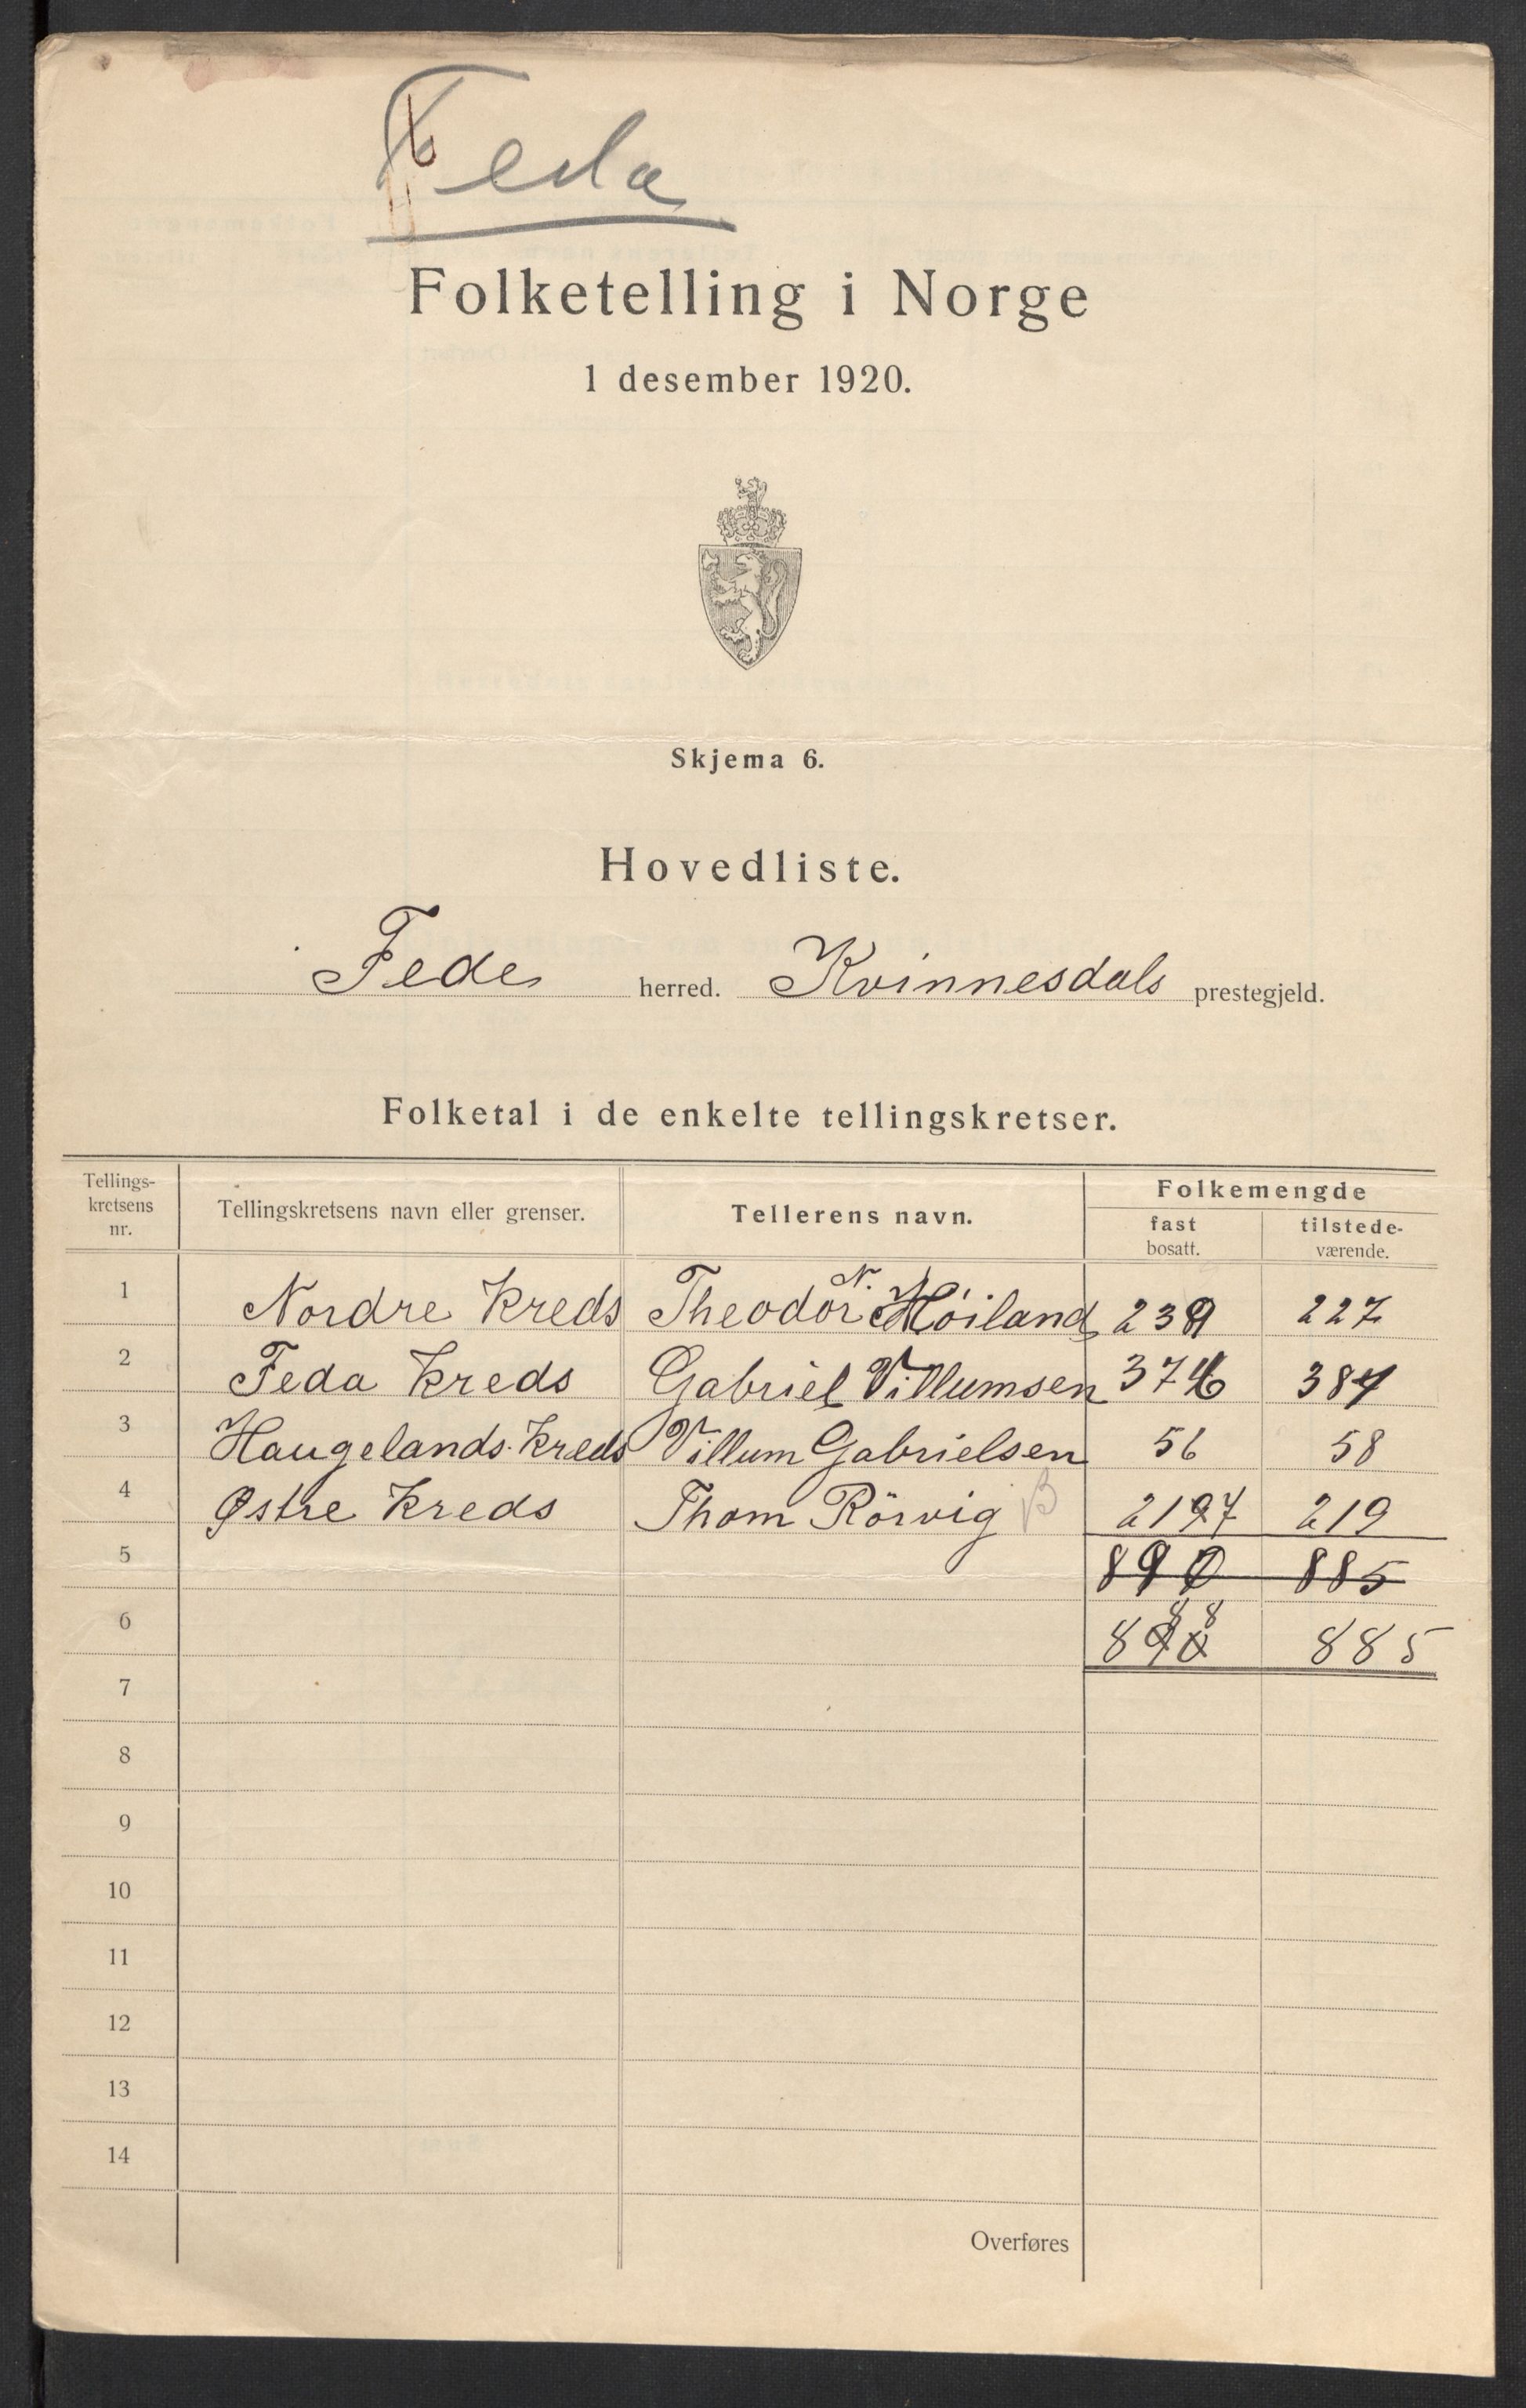 Feda
Folketelling i Norge
1 desember 1920.
Skjema 6.
Hovedliste.
Fede herred. Kvinnesdals prestegjeld.
Folketal i de enkelte tellingskretser.
Tellings-kretsens nr. Tellingskretsens navn eller grenser. Tellerens navn. Folkemengde
fast bosatt. tilstede-værende.
1 Nordre Kreds Theodor N. Höiland 239 227
2 Feda Kreds Gabriel Villumsen 376 384
3 Haugelands Kreds Villum Gabrielsen 56 58
4 Østre Kreds Thom Rörvig 2197 219
5 890 885
6 888 885
7
8
9
10
11
12
13
14
Overføres